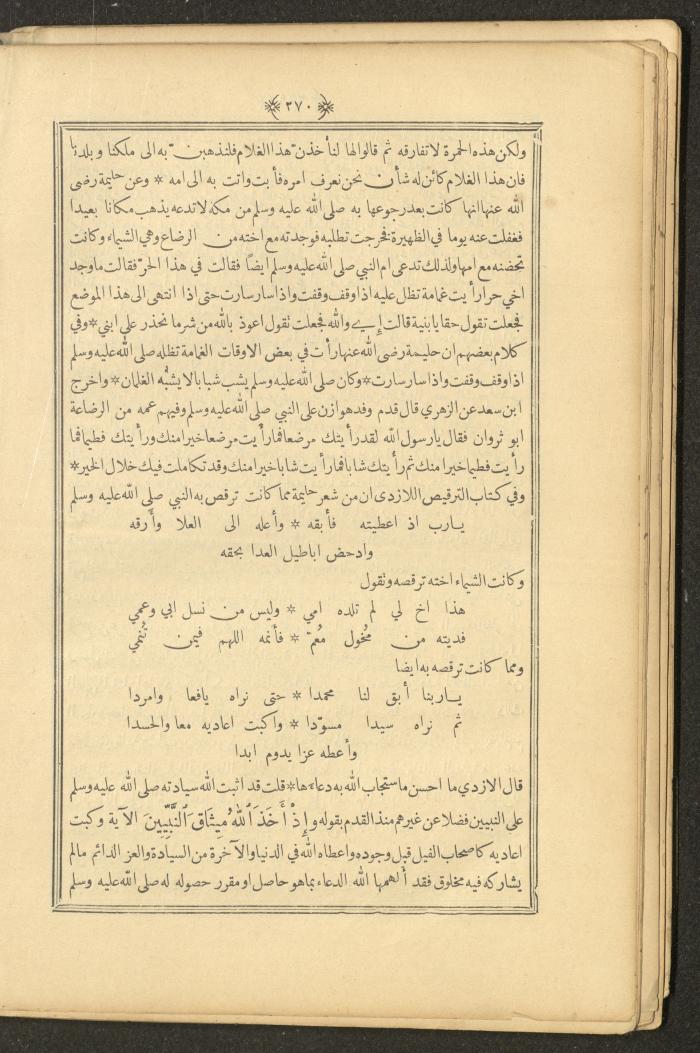 ٢٧٠
ولكن هذه الحمرة لا تفارقه ثم قالوا لها لنأخذنّ هذا الغلام فلنذهبنّ به الى ملكنا وبلدنا
فان هذا الغلام كائن له شأن نحن نعرف امره فأبت واتت به الى امه * وعن حليمة رضى
الله عنها انها كانت بعد رجوعها به صلى الله عليه وسلم من مكة لا تدعه يذهب مكانا بعيدا
فغفلت عنه يوما في الظهيرة فخرجت تطلبه فوجدته مع اخته من الرضاع وهي الشيماء وكانت
تحضنه مع امها ولذلك تدعى ام النبي صلى الله عليه وسلم ايضاً فقالت في هذا الحرّ فقالت ما وجد
اخي حرا رأيت غمامة تظل عليه اذا وقف وقفت واذا سار سارت حتى اذا انتهى الى هذا الموضع
فجعلت تقول حقا يا بنية قالت إي والله فجعلت تقول اعوذ بالله من شر ما نحذر على ابني * وفي
كلام بعضهم ان حليمة رضى الله عنها رأت في بعض الاوقات الغمامة تظله صلى الله عليه وسلم
اذا وقف وقفت واذا سار سارت * وكان صلى الله عليه وسلم يشب شبابا لا يشبُّه الغلمان * واخرج
ابن سعد عن الزهري قال قدم وفد هوازن على النبي صلى الله عليه وسلم وفيهم عمه من الرضاعة
ابو ثروان فقال يا رسول الله لقد رأيتك مرضعا فما رأيت مرضعا خيرا منك ورأيتك فطيما فما
رأيت فطيما خيرا منك ثم رأيتك شابا فما رأيت شابا خيرا منك وقد تكاملت فيك خلال الخير *
وفي كتاب الترقيص للازدى ان من شعر حليمة مما كانت ترقص به النبي صلى الله عليه وسلم
يا رب اذ اعطيته فأبقه * وأعله الى العلا وأرقه
وادحض اباطيل العدا بحقه
وكانت الشيماء اخته ترقصه وتقول
هذا اخ لي لم تلده امي * وليس من نسل ابي وعمي
فديته من مُخول مُعمّ * فأنمه اللهم فيمن تُنمي
ومما كانت ترقصه به ايضا
يا ربنا أبق لنا محمدا * حتى نراه يافعا وامردا
ثم نراه سيدا مسوّدا * واكبت اعاديه معا والحسدا
وأعطه عزا يدوم ابدا
قال الازدي ما احسن ما ستجاب الله به دعاءها * قلت قد اثبت الله سيادته صلى الله عليه وسلم
على النبيين فضلا عن غيرهم منذ القدم بقوله وَإِذْ أَخَذَ ٱللهُ مِيثَاقَ ٱلنَّبِيِّينَ الآية وكبت
اعاديه كاصحاب الفيل قبل وجوده واعطاه الله في الدنيا والآخرة من السيادة والعز الدائم مالم
يشاركه فيه مخلوق فقد ألهمها الله الدعاء بما هو حاصل او مقرر حصوله له صلى الله عليه وسلم